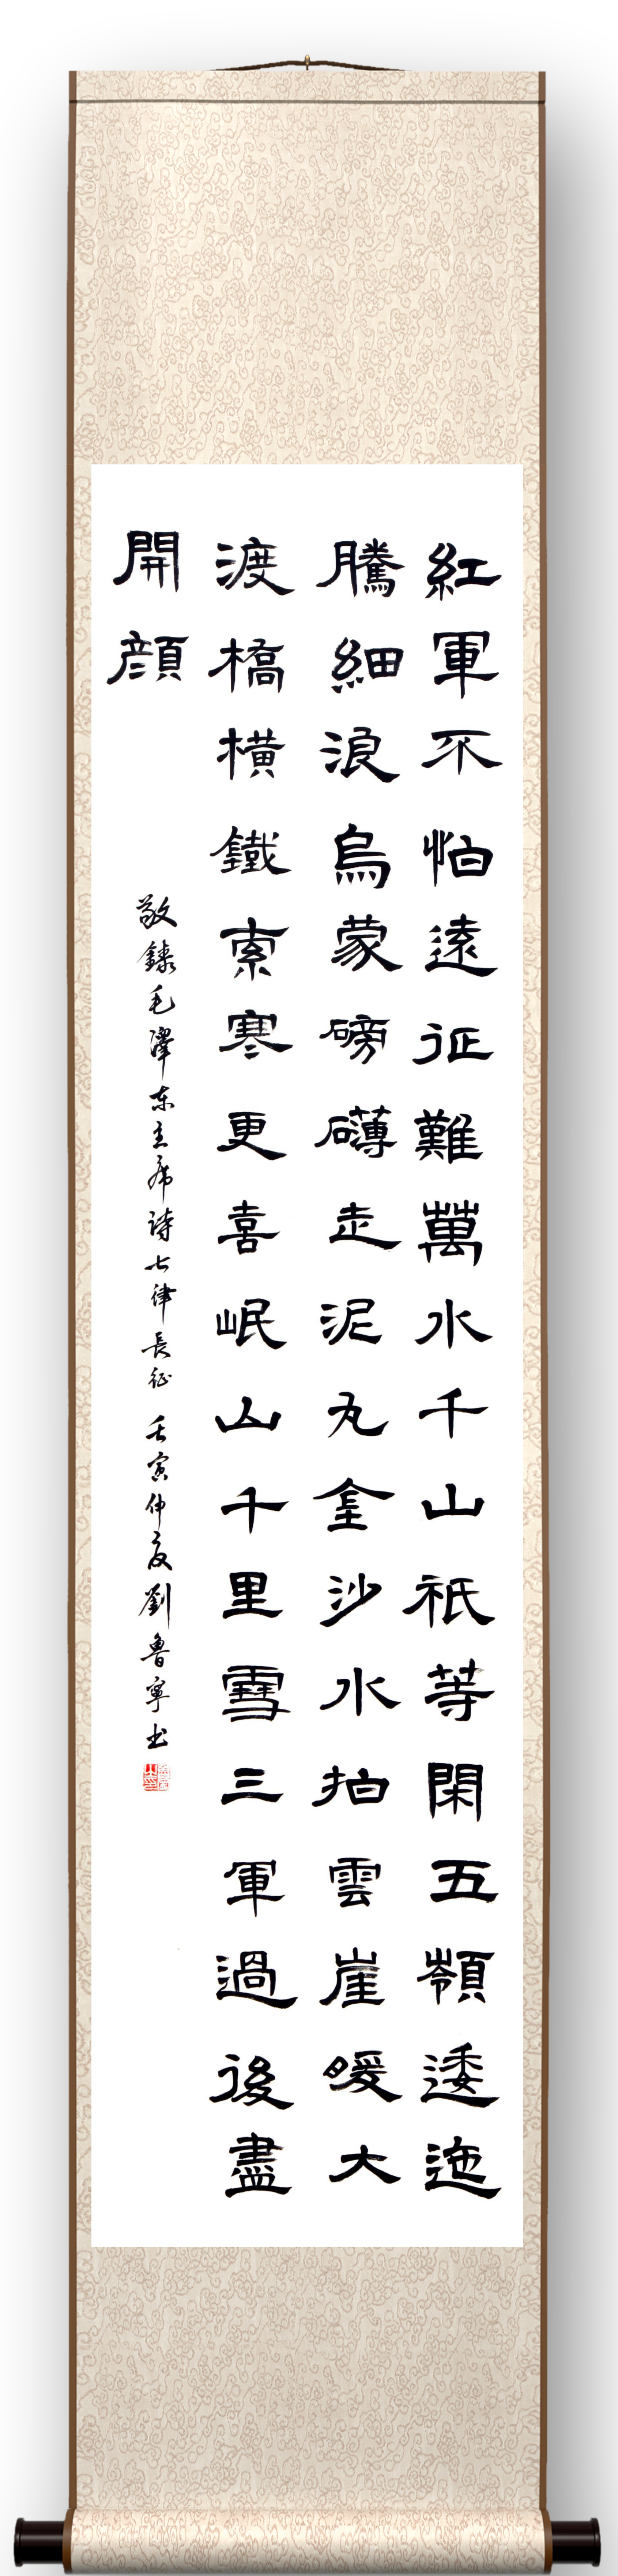 紅軍不怕遠征難萬水千山祇等閑五嶺逶迤
騰細浪烏蒙磅礴走泥丸金沙水拍雲崖暖大
渡橋横鐵索寒更喜岷山千里雪三軍過後盡
開顔
敬録毛澤东主席诗七律長征 壬寅仲夏劉魯寧书